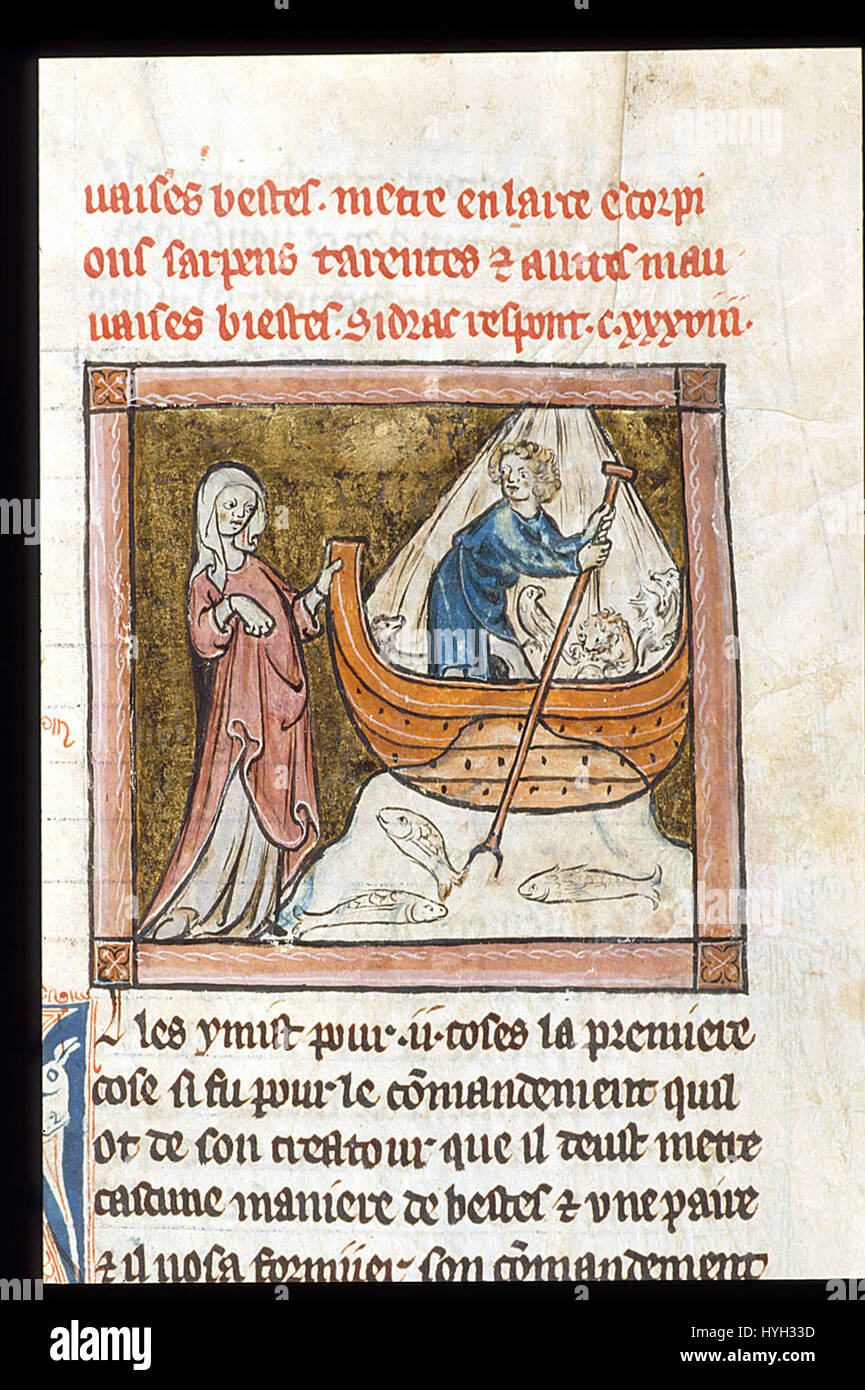 uaises bestes. metre en larce escorpi
ons sarpens tarentes & autres mau
uaises biestes. Sidrac respont. c.xxxviii.
les ymist pour .ii. coses la premiere
cose si fu pour le cōmandement quil
ot de son creatour que il deust metre
cascune maniere de bestes & vne paire
& il nosa son cōmandement
alamy
Image ID: HYH33D
www.alamy.com